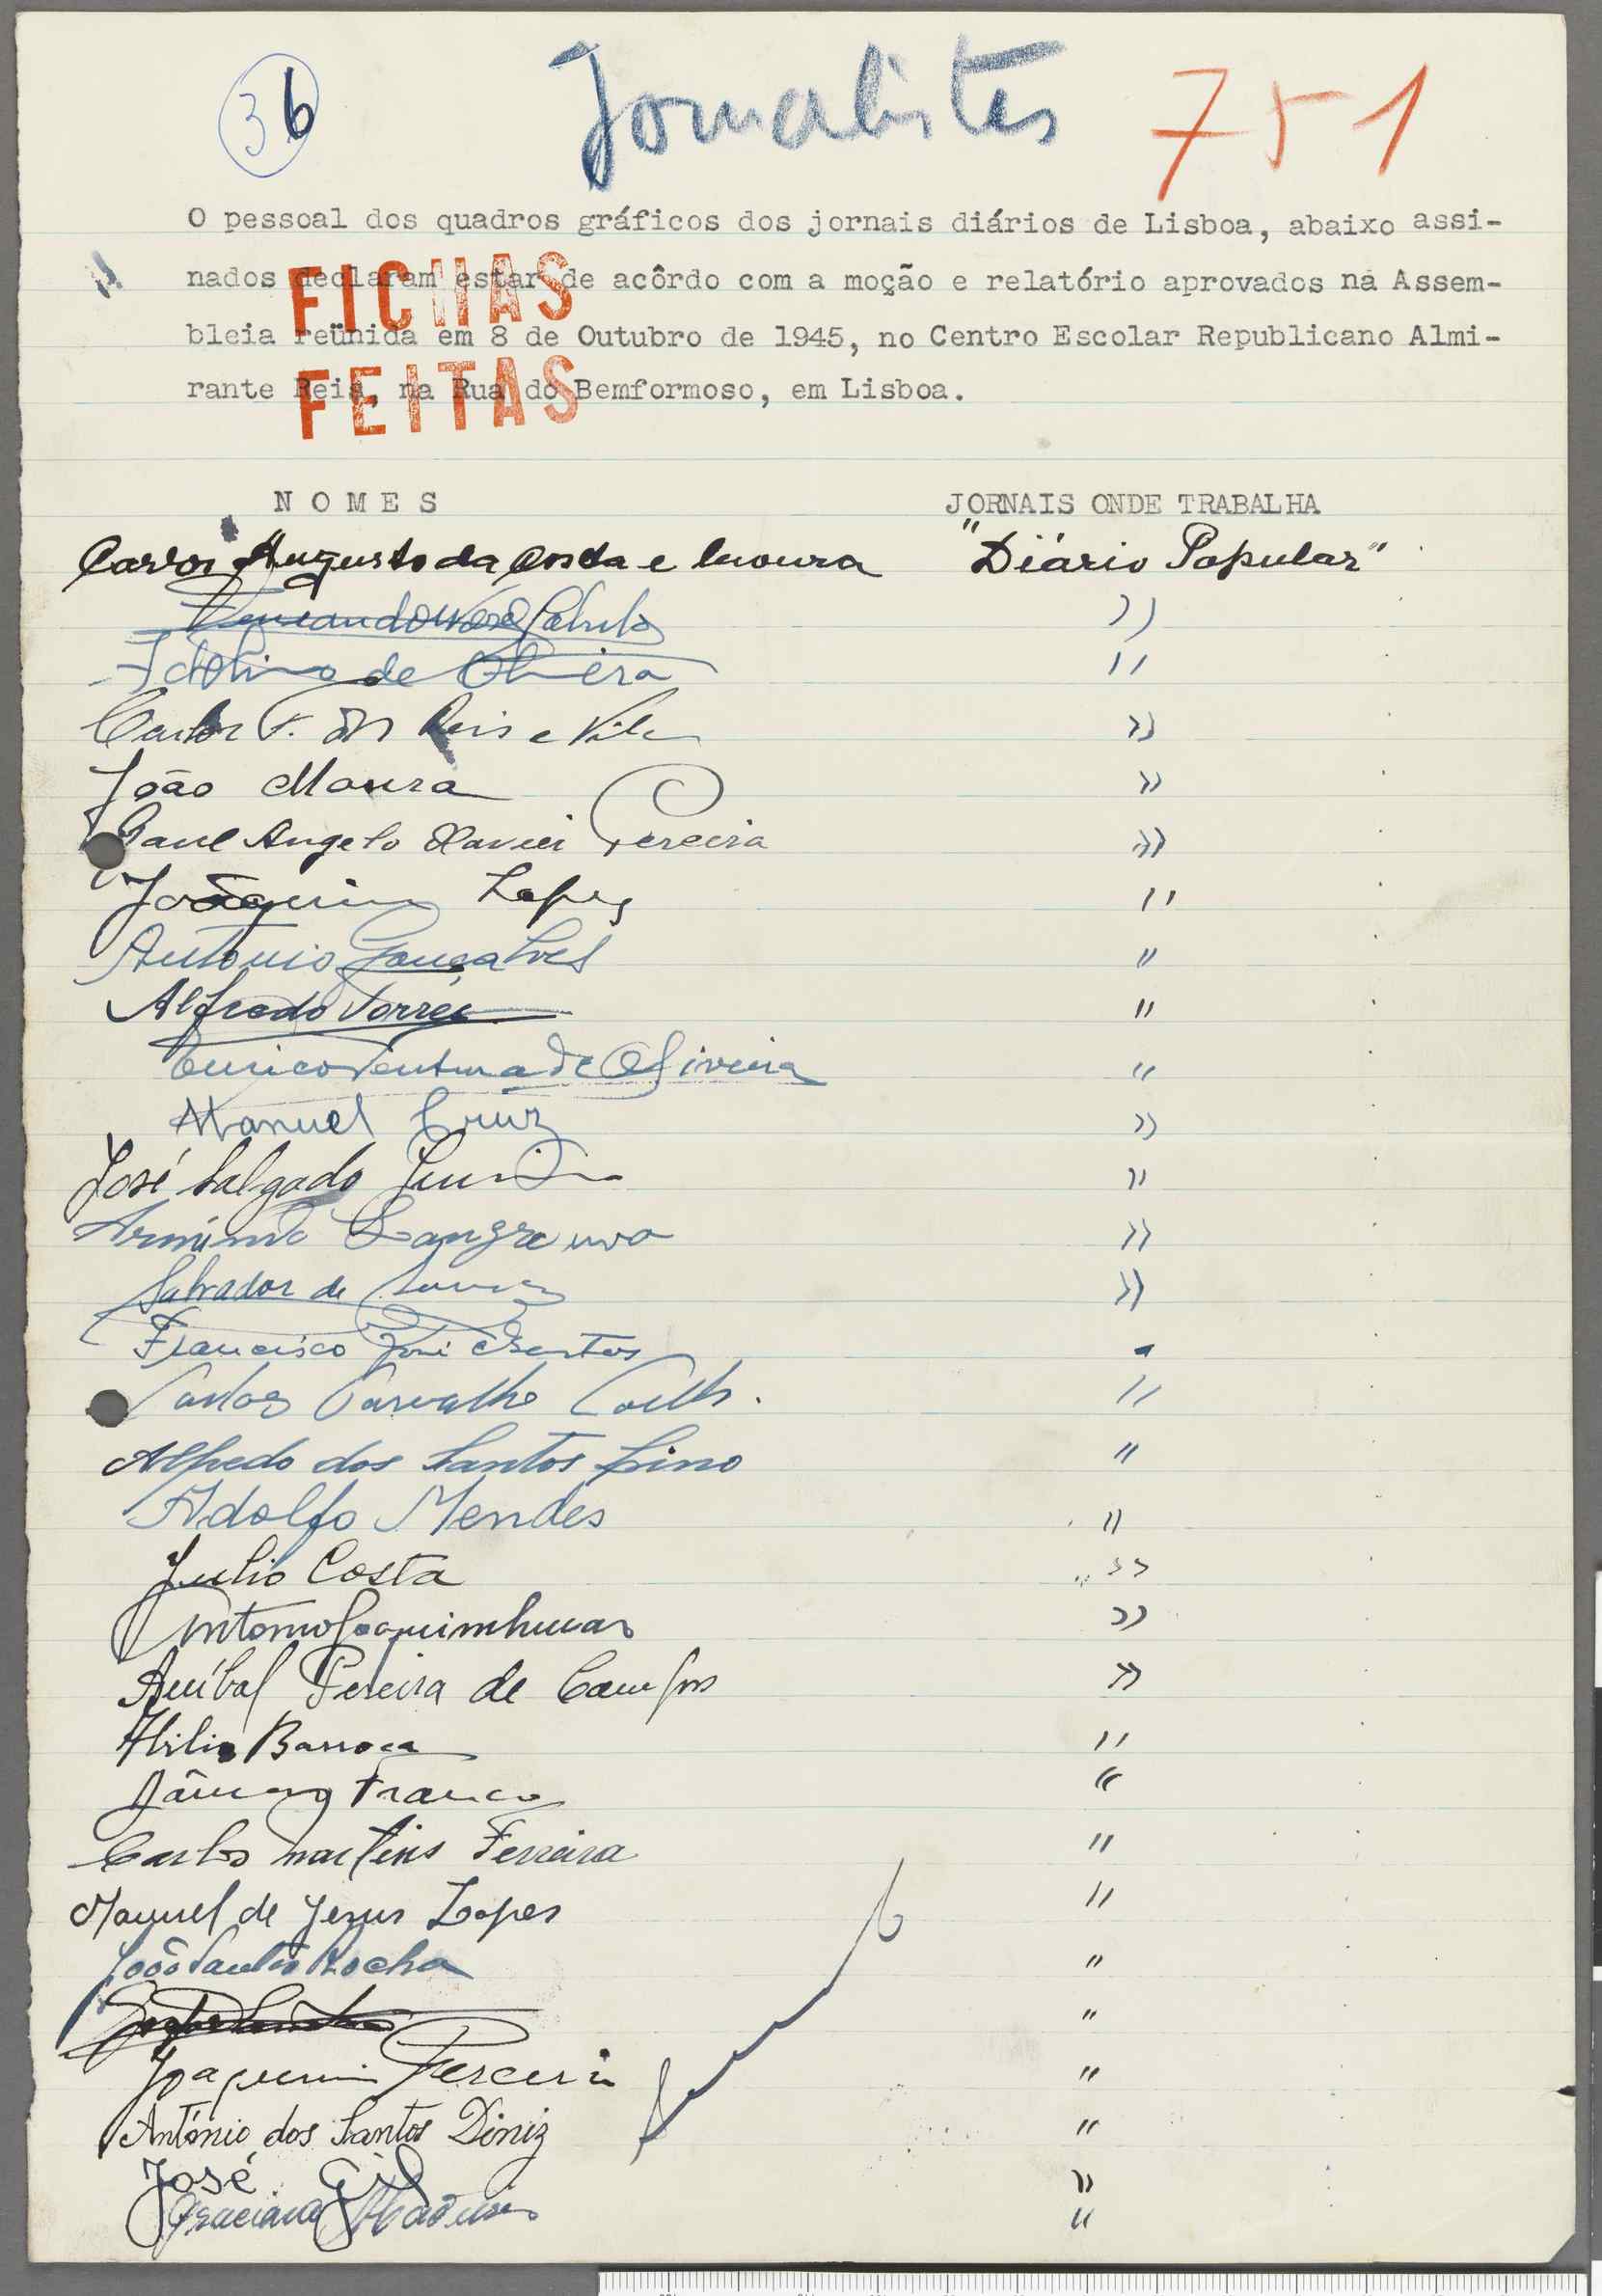 36
Jornalistas 751
O pessoal dos quadros gráficos dos jornais diários de Lisboa, abaixo assi-
nados declaram estar de acôrdo com a moção e relatório aprovados na Assem-
bleia reünida em 8 de Outubro de 1945, no Centro Escolar Republicano Almi-
rante Reis, na Rua do Bemformoso, em Lisboa.
FICHAS
FEITAS
NOMES JORNAIS ONDE TRABALHA
Carlos Augusto da Costa e Moura "Diário Popular"
"
de Oliveira "
Carlos F. dos Reis e "
João Moura "
Raul Angelo Xavier Pereira "
Joaquim Lopes "
António Gonçalves "
Alfredo Torres "
Eurico Ventura de Oliveira "
Manuel Cruz "
José Salgado "
Arménio "
Salvador de Sousa "
Francisco José Santos "
Carlos Carvalho Coelho. "
Alfredo dos Santos Lino "
Adolfo Mendes "
Julio Costa "
Antonio Joaquim "
Aníbal Pereira de Campos "
Abilio Barroca "
Franco "
Carlos Martins Ferreira "
Manuel de Jesus Lopes "
João Santos Rocha "
"
Joaquim Pereira "
António dos Santos Diniz "
José Gil "
Graciano "